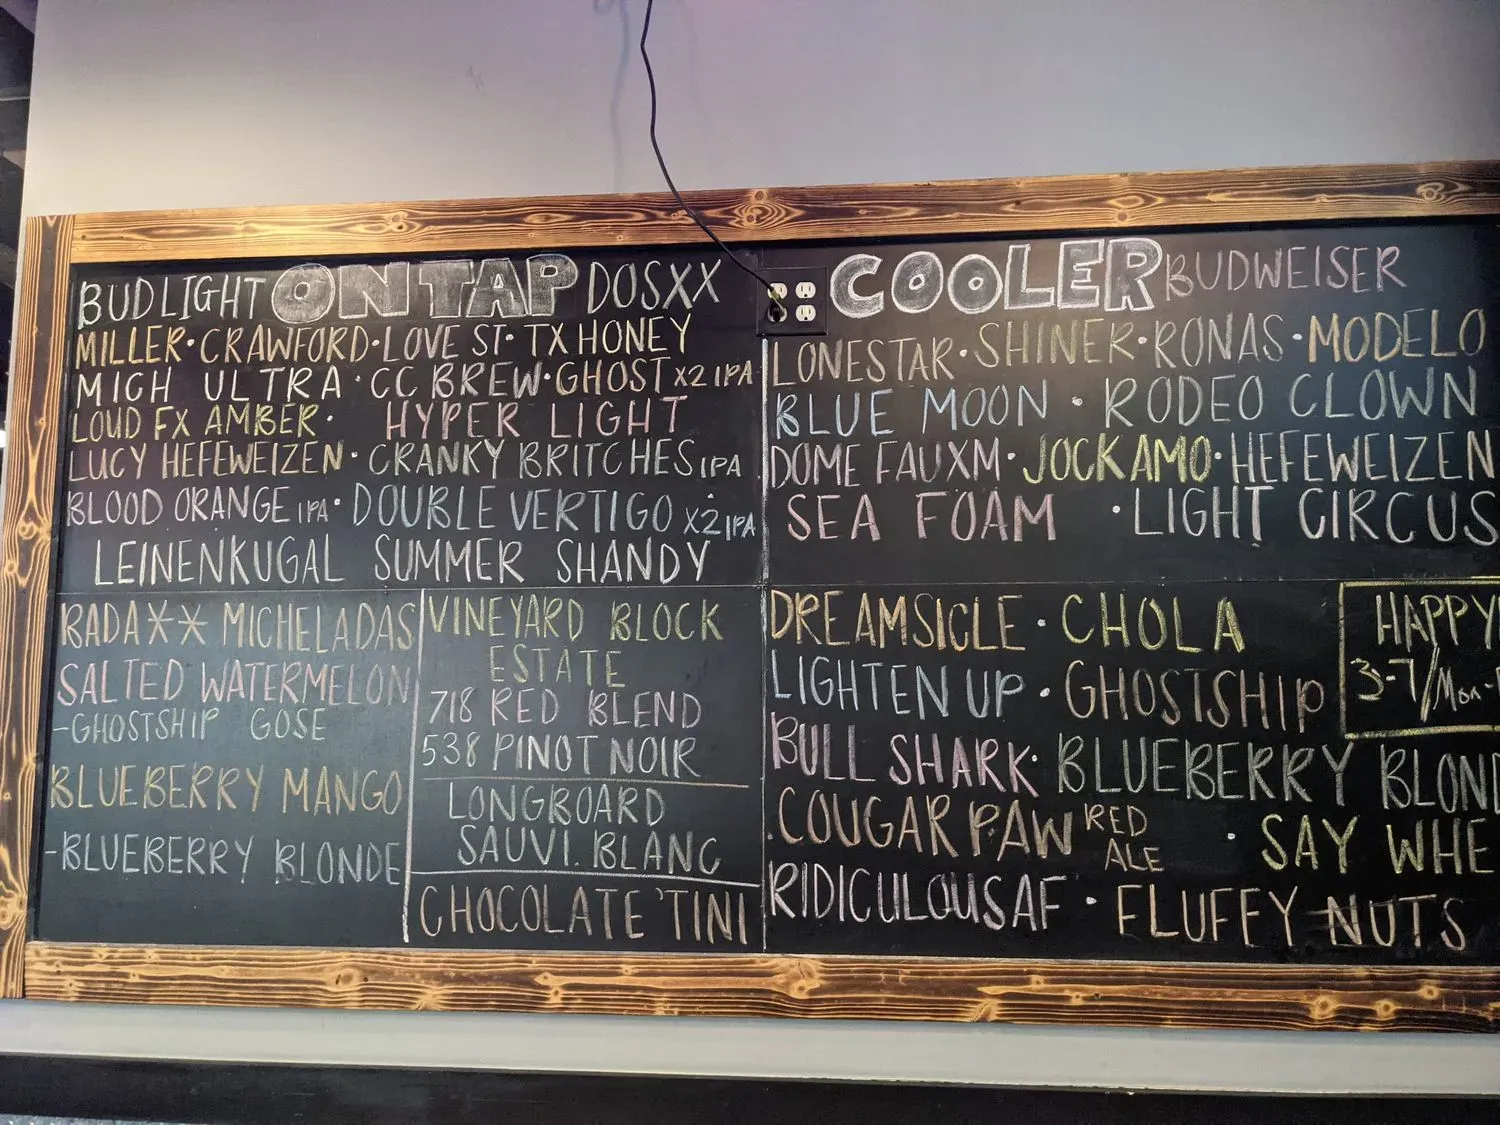 BUD LIGHT ON TAP DOS XX
MILLER · CRAWFORD · LOVE ST · TX HONEY
MICH ULTRA · CC BREW · GHOST X2 IPA
LOUD FX AMBER · HYPER LIGHT
LUCY HEFEWEIZEN · CRANKY BRITCHES IPA
BLOOD ORANGE IPA · DOUBLE VERTIGO X2 IPA
LEINENKUGAL SUMMER SHANDY
BADA** MICHELADAS
SALTED WATERMELON
-GHOSTSHIP GOSE
BLUEBERRY MANGO
-BLUEBERRY BLONDE
VINEYARD BLOCK
ESTATE
718 RED BLEND
538 PINOT NOIR
LONGBOARD
SAUVI. BLANC
CHOCOLATE 'TINI
COOLER BUDWEISER
LONESTAR · SHINER · RONAS · MODELO
BLUE MOON · RODEO CLOWN
DOME FAUXM · JOCKAMO · HEFEWEIZEN
SEA FOAM · LIGHT CIRCUS
DREAMSICLE · CHOLA
LIGHTEN UP · GHOSTSHIP
BULL SHARK · BLUEBERRY BLOND
COUGAR PAW RED ALE · SAY WHE
RIDICULOUS AF · FLUFFY NUTS
HAPPY
3-7/Mon-